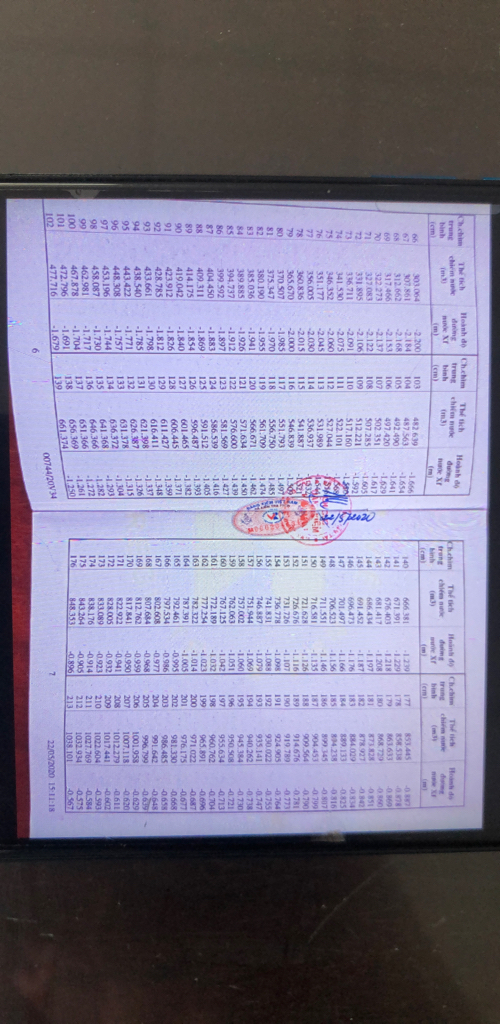 Ch.chìm trung bình (cm) Thể tích chiếm nước (m3) Hoành độ đường nước Xf (cm) Ch.chìm trung bình (cm) Thể tích chiếm nước (m3) Hoành độ đường nước Xf (cm)
66 303.064 -2.200 103 482.639 -1.666
67 307.861 -2.184 104 487.563 -1.654
68 312.662 -2.168 105 492.490 -1.641
69 317.466 -2.153 106 497.420 -1.629
70 322.273 -2.137 107 502.351 -1.617
71 327.083 -2.122 108 507.285 -1.605
72 331.895 -2.106 109 512.221 -1.592
73 336.711 -2.091 110 517.160
74 341.530 -2.075 111 522.101
75 346.352 -2.060 112 527.044
76 351.177 -2.045 113 531.989
77 356.005 -2.030 114 536.937
78 360.836 -2.015 115 541.887
79 365.670 -2.000 116 546.839
80 370.507 -1.985 117 551.793 -1.497
81 375.347 -1.970 118 556.750 -1.485
82 380.190 -1.955 119 561.709 -1.474
83 385.036 -1.941 120 566.671 -1.462
84 389.885 -1.926 121 571.634 -1.450
85 394.737 -1.912 122 576.600 -1.439
86 399.592 -1.897 123 581.569 -1.427
87 404.450 -1.883 124 586.539 -1.416
88 409.311 -1.869 125 591.512 -1.405
89 414.175 -1.854 126 596.487 -1.393
90 419.042 -1.840 127 601.465 -1.382
91 423.912 -1.826 128 606.445 -1.371
92 428.785 -1.812 129 611.427 -1.359
93 433.661 -1.798 130 616.411 -1.348
94 438.540 -1.785 131 621.398 -1.337
95 443.422 -1.771 132 626.387 -1.326
96 448.308 -1.757 133 631.378 -1.315
97 453.196 -1.744 134 636.372 -1.304
98 458.087 -1.730 135 641.368 -1.293
99 462.981 -1.717 136 646.366 -1.282
100 467.878 -1.704 137 651.366 -1.272
101 472.796 -1.691 138 656.369 -1.261
102 477.716 -1.679 139 661.374 -1.250
6
00744/20V34
Ch.chìm trung bình (cm) Thể tích chiếm nước (m3) Hoành độ đường nước Xf (cm) Ch.chìm trung bình (cm) Thể tích chiếm nước (m3) Hoành độ đường nước Xf (cm)
140 666.381 -1.239 177 853.445 -0.887
141 671.391 -1.229 178 858.538 -0.878
142 676.403 -1.218 179 863.633 -0.869
143 681.417 -1.208 180 868.729 -0.860
144 686.434 -1.197 181 873.828 -0.851
145 691.452 -1.187 182 878.927 -0.842
146 696.473 -1.176 183 884.029 -0.834
147 701.497 -1.166 184 889.133 -0.825
148 706.523 -1.156 185 894.238 -0.816
149 711.551 -1.146 186 899.345 -0.807
150 716.581 -1.135 187 904.453 -0.799
151 721.628 -1.126 188 909.564 -0.790
152 726.676 -1.116 189 914.676 -0.781
153 731.726 -1.107 190 919.789 -0.773
154 736.778 -1.098 191 924.905 -0.764
155 741.831 -1.088 192 930.022 -0.755
156 746.887 -1.079 193 935.141 -0.747
157 751.944 -1.069 194 940.262 -0.738
158 757.002 -1.060 195 945.384 -0.730
159 762.063 -1.051 196 950.508 -0.721
160 767.125 -1.042 197 955.634 -0.713
161 772.189 -1.032 198 960.762 -0.704
162 777.254 -1.023 199 965.891 -0.696
163 782.322 -1.014 200 971.022 -0.687
164 787.391 -1.005 201 976.175 -0.677
165 792.461 -0.995 202 981.330 -0.668
166 797.534 -0.986 203 986.485 -0.658
167 802.608 -0.977 204 991.642 -0.648
168 807.684 -0.968 205 996.799
169 812.762 -0.959 206 1001.958 -0.629
170 817.841 -0.950 207 1007.118 -0.620
171 822.922 -0.941 208 1012.279 -0.611
172 828.005 -0.932 209 1017.441 -0.602
173 833.089 -0.923 210 1022.604 -0.593
174 838.176 -0.914 211 1027.769 -0.584
175 843.264 -0.905 212 1032.934 -0.575
176 848.353 -0.896 213 1038.101 -0.567
7
22/05/2020 15:11:18